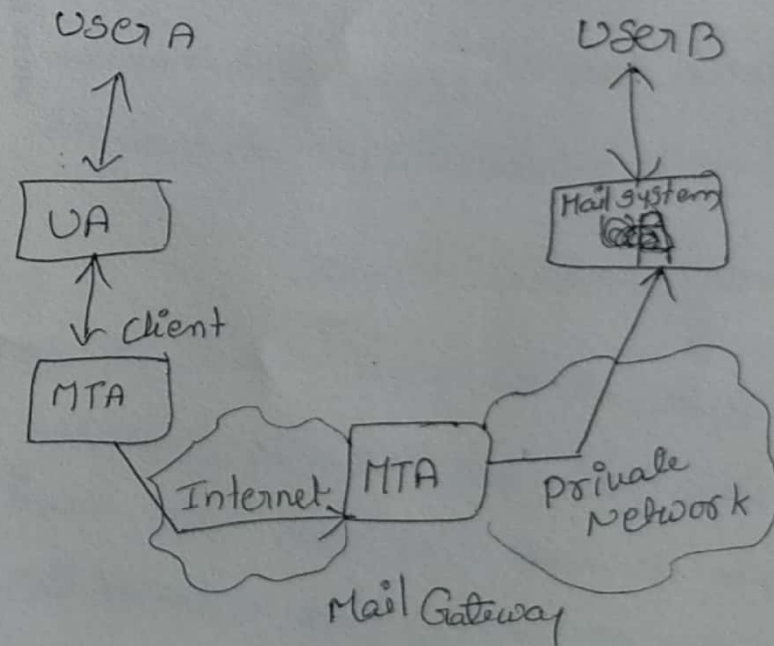 User A
User B
UA
Mail system
Client
MTA
Internet
MTA
Private
Network
Mail Gateway